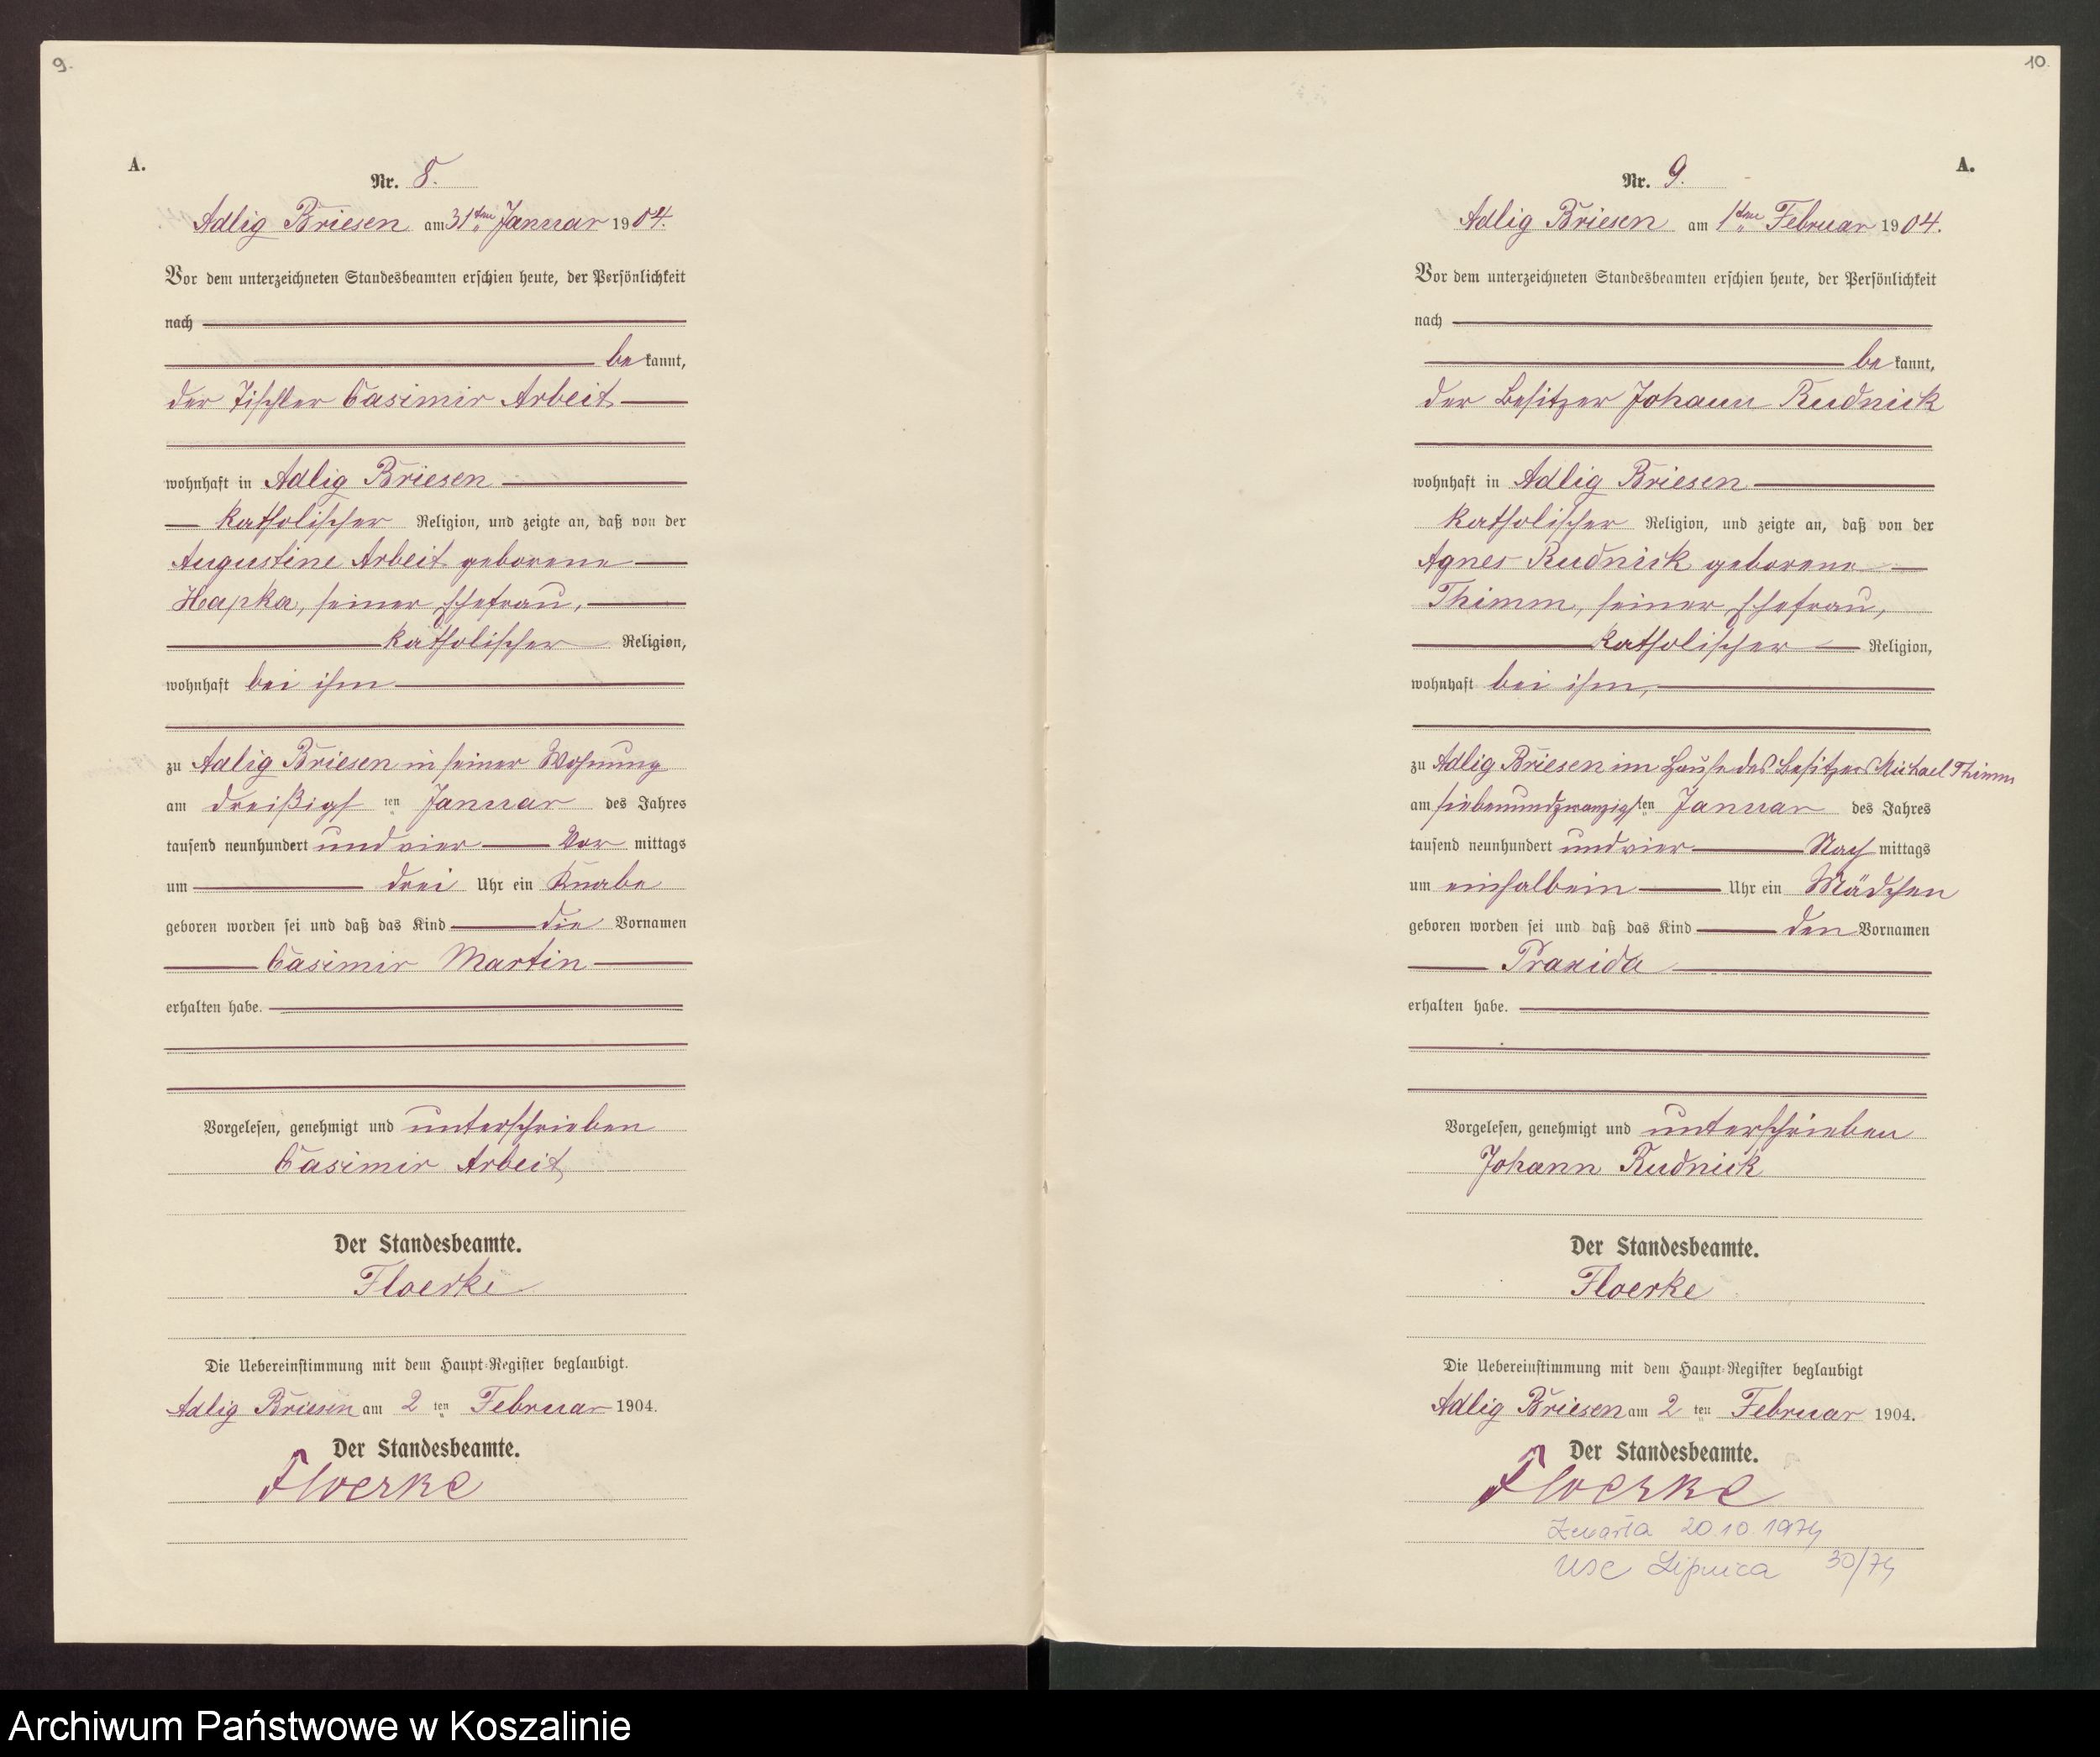 9.
A.
Nr. 8.
Adlig Briesen am 31ten Januar 1904.
Vor dem unterzeichneten Standesbeamten erschien heute, der Persönlichkeit
nach
bekannt,
der Tischler Casimir Arbeit
wohnhaft in Adlig Briesen
katholischer Religion, und zeigte an, daß von der
Augustine Arbeit geborene
Hapka, seiner Ehefrau,
katholischer Religion,
wohnhaft bei ihm
zu Adlig Briesen in seiner Wohnung
am dreißigsten Januar des Jahres
tausend neunhundert und vier Vormittags
um drei Uhr ein Knabe
geboren worden sei und daß das Kind die Vornamen
Casimir Martin
erhalten habe.
Vorgelesen, genehmigt und unterschrieben
Casimir Arbeit
Der Standesbeamte.
Floerke
Die Uebereinstimmung mit dem Haupt-Register beglaubigt.
Adlig Briesen am 2ten Februar 1904.
Der Standesbeamte.
Floerke
10.
A.
Nr. 9.
Adlig Briesen am 1ten Februar 1904.
Vor dem unterzeichneten Standesbeamten erschien heute, der Persönlichkeit
nach
bekannt,
der Besitzer Johann Rudnick
wohnhaft in Adlig Briesen
katholischer Religion, und zeigte an, daß von der
Agnes Rudnick geborene
Thimm, seiner Ehefrau,
katholischer Religion,
wohnhaft bei ihm,
zu Adlig Briesen im Hause des Besitzers Michael Thimm
am siebenundzwanzigsten Januar des Jahres
tausend neunhundert und vier Nachmittags
um einhalbein Uhr ein Mädchen
geboren worden sei und daß das Kind den Vornamen
Praxida
erhalten habe.
Vorgelesen, genehmigt und unterschrieben
Johann Rudnick
Der Standesbeamte.
Floerke
Die Uebereinstimmung mit dem Haupt-Register beglaubigt
Adlig Briesen am 2ten Februar 1904.
Der Standesbeamte.
Floerke
Zmarła 20.10.1974
USC Lipnica 30/74
Archiwum Państwowe w Koszalinie